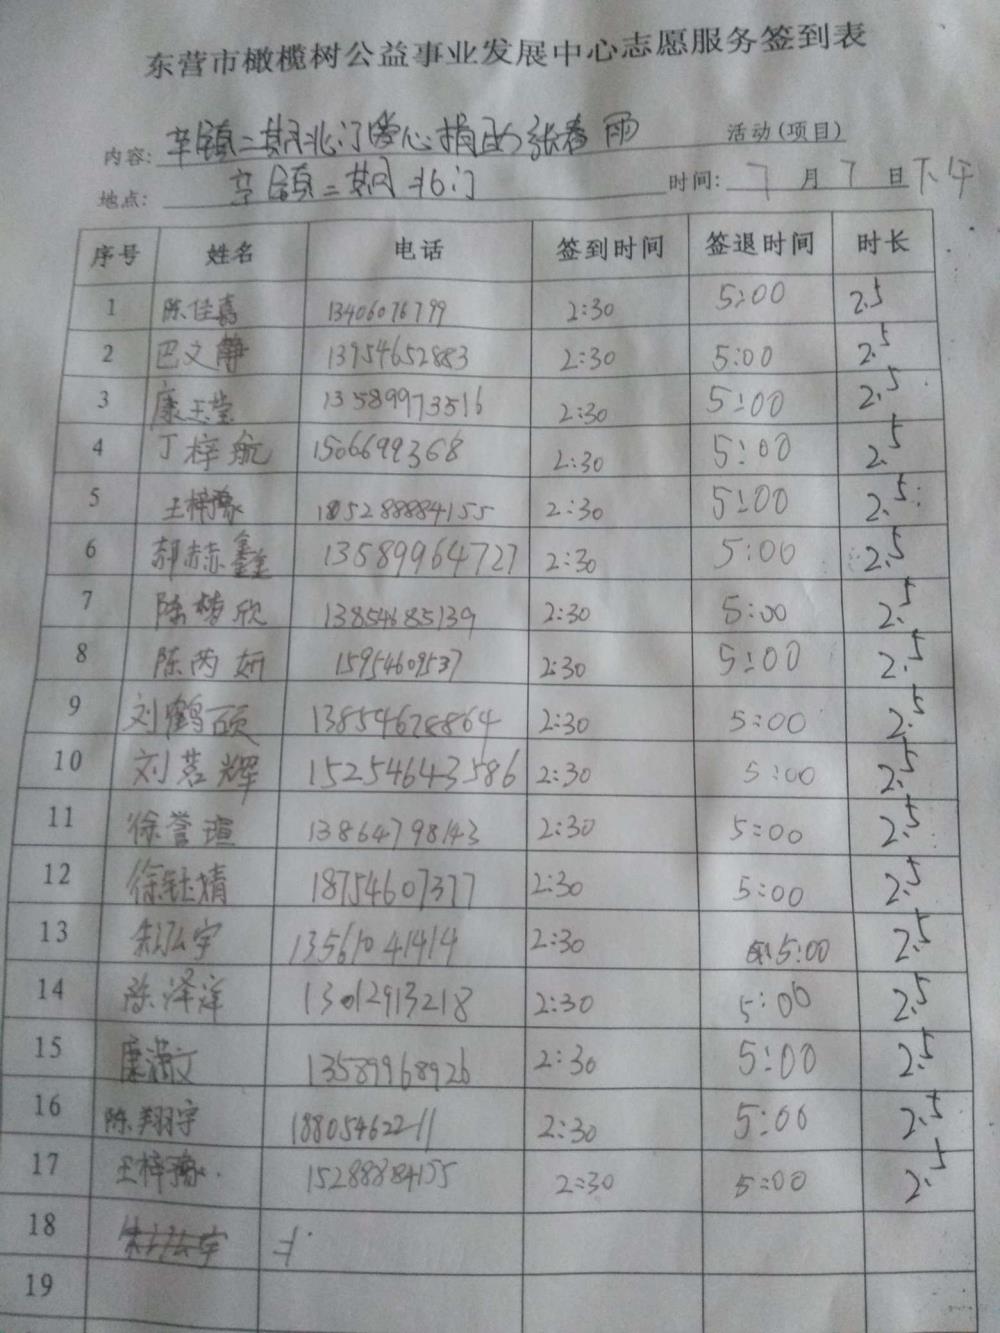 东营市橄榄树公益事业发展中心志愿服务签到表
内容: 辛镇二期北门爱心捐助张春雨 活动(项目)
地点: 辛镇二期北门 时间: 7 月 7 日下午
序号 姓名 电话 签到时间 签退时间 时长
1 陈佳嘉 13406076799 2:30 5:00 2.5
2 巴文静 13954652883 2:30 5:00 2.5
3 康玉莹 13589973516 2:30 5:00 2.5
4 丁梓航 1506699368 2:30 5:00 2.5
5 王梓豫 2:30 5:00 2.5
6 郝赫鑫 13589964727 2:30 5:00 2.5
7 陈梦欣 13854685139 2:30 5:00 2.5
8 陈芮妍 15954609537 2:30 5:00 2.5
9 刘鹤硕 13854678864 2:30 5:00 2.5
10 刘茗辉 15254643586 2:30 5:00 2.5
11 徐誉瑄 13864798143 2:30 5:00 2.5
12 徐钰婧 18754607377 2:30 5:00 2.5
13 朱泓宇 13561041414 2:30 5:00 2.5
14 陈泽洋 13012913218 2:30 5:00 2.5
15 康潇文 13589968926 2:30 5:00 2.5
16 陈翔宇 18805462211 2:30 5:00 2.5
17 王梓豫. 15288884155 2:30 5:00 2.5
18
19